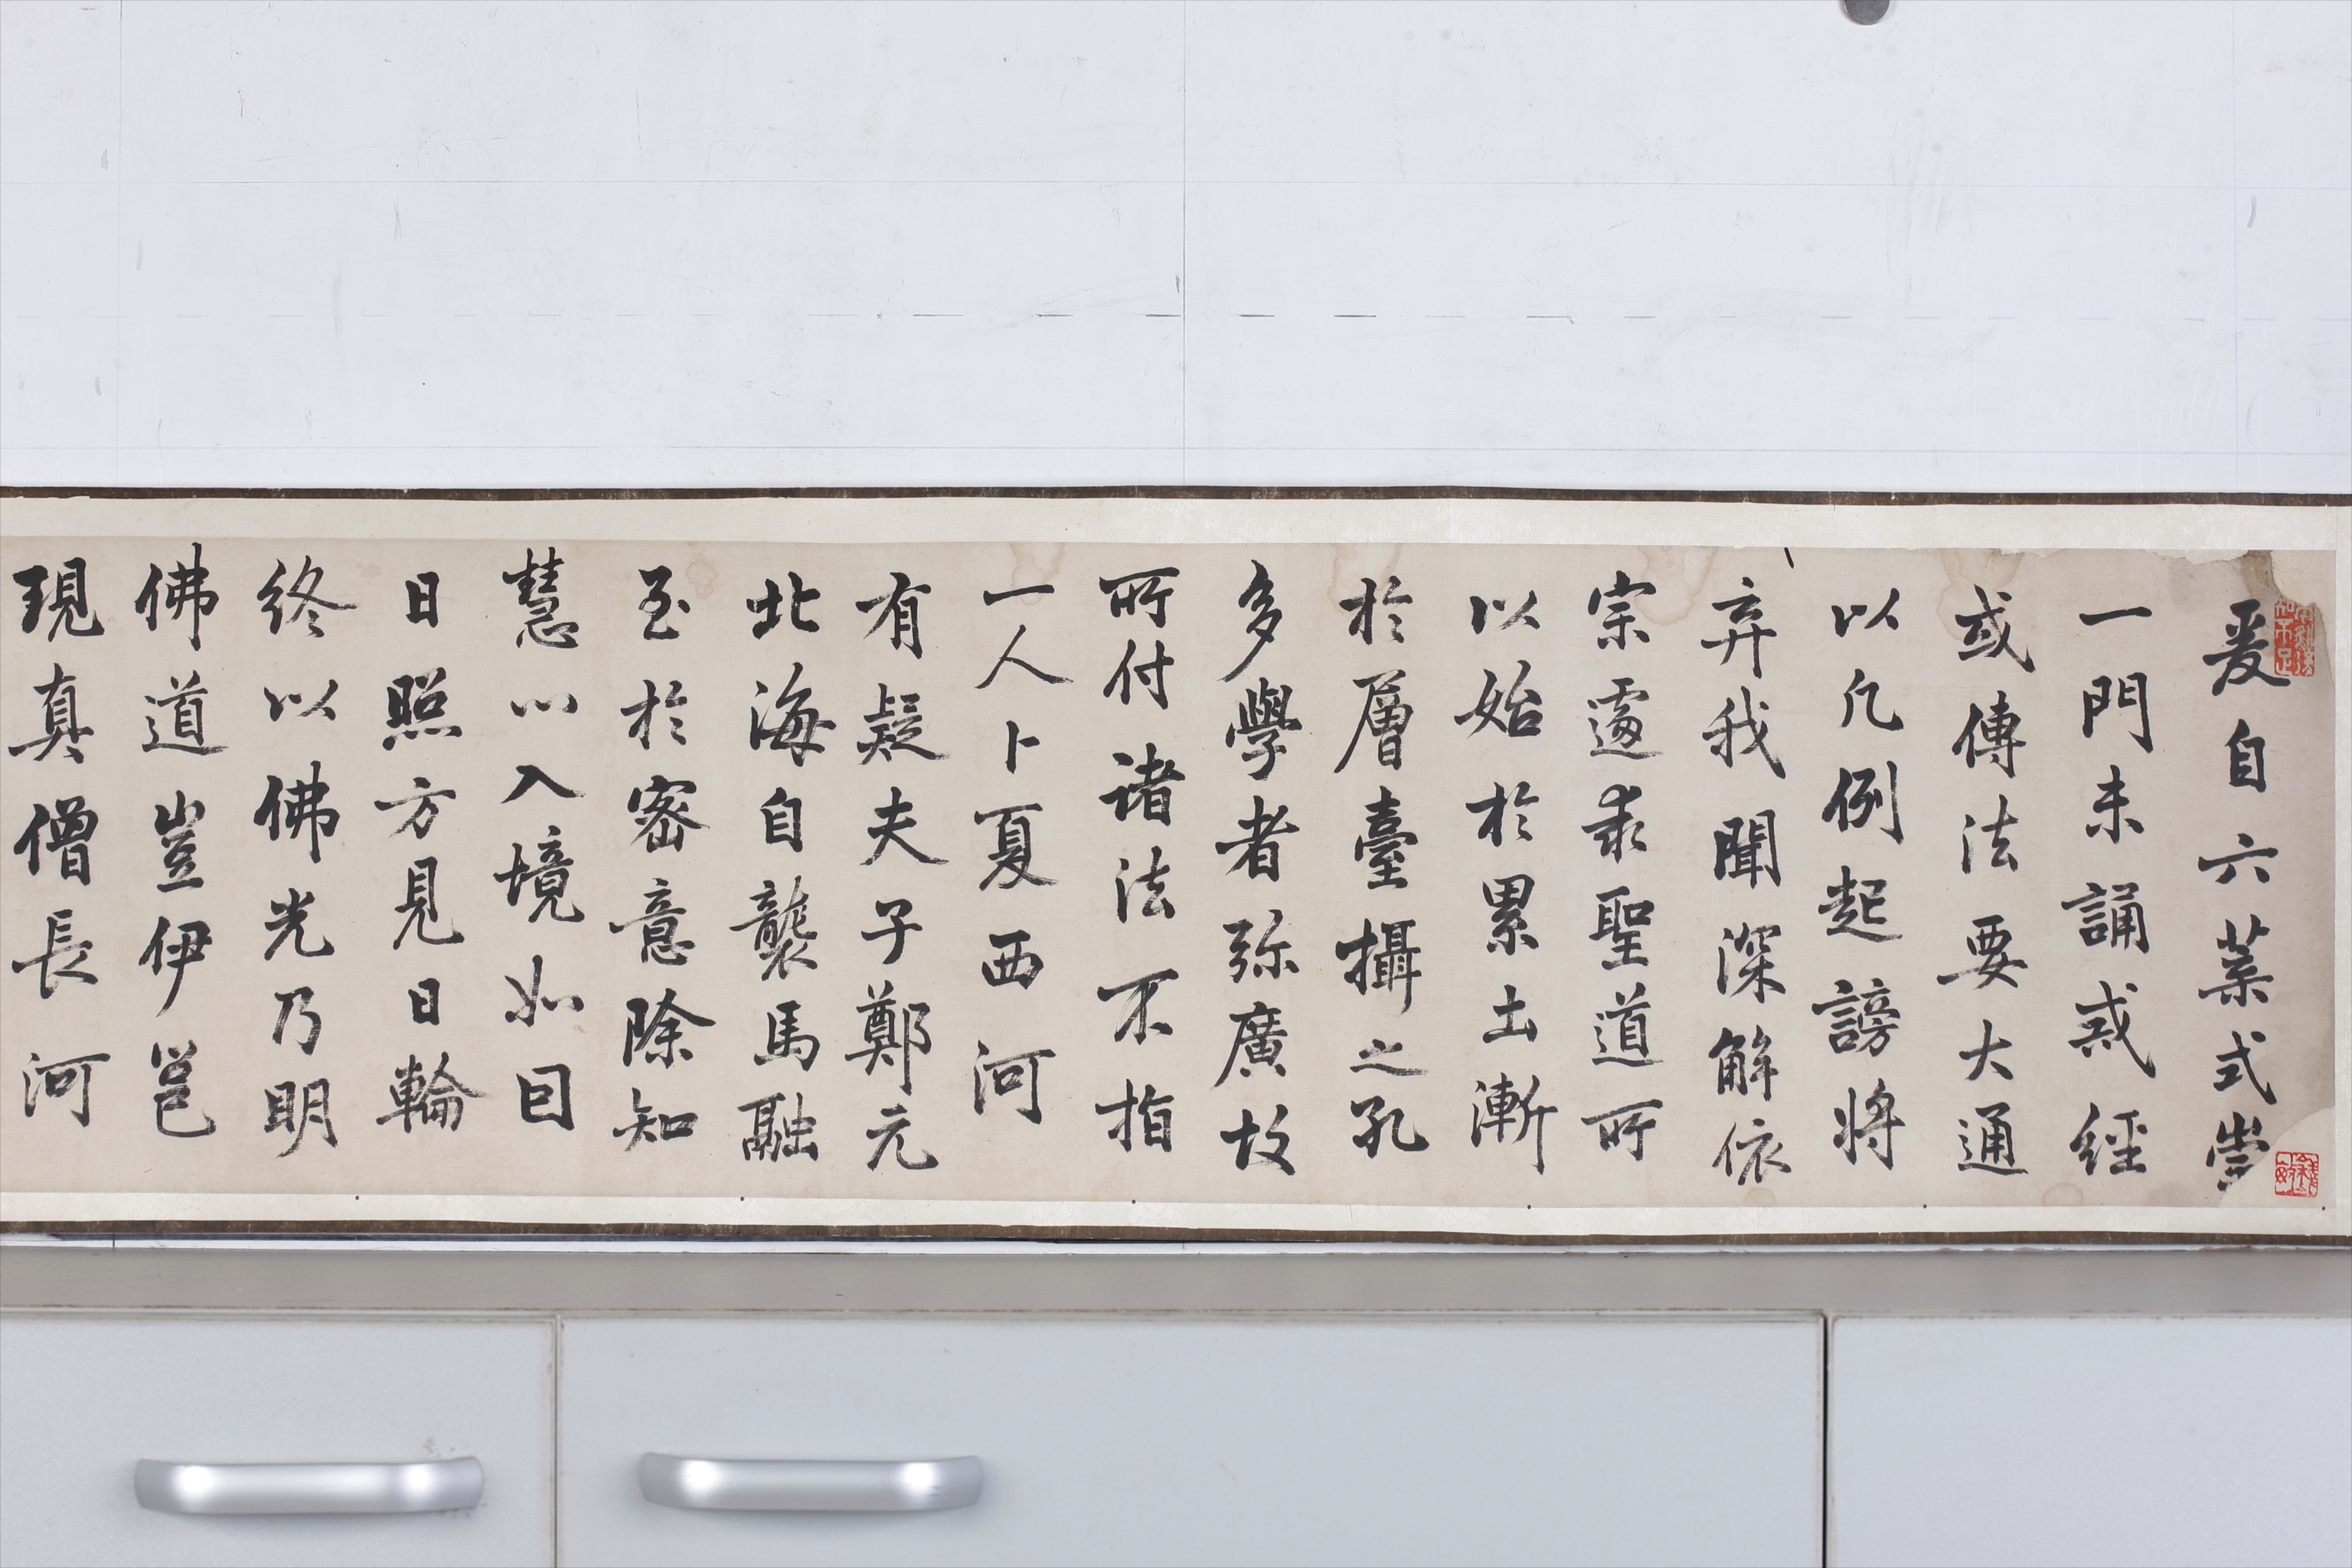 爰自六葉式崇
一門未誦惑經
或傳法要大通
以凡例起謗將
弃我聞深解依
宗遽求聖道所
以始於累土漸
於層臺攝之孔
多學者弥廣故
所付诸法不指
一人卜夏西河
有疑夫子鄭元
北海自襲馬融
至於密意除知
慧以入境如因
日照方見日輪
終以佛光乃明
佛道豈伊邕
現真僧長河